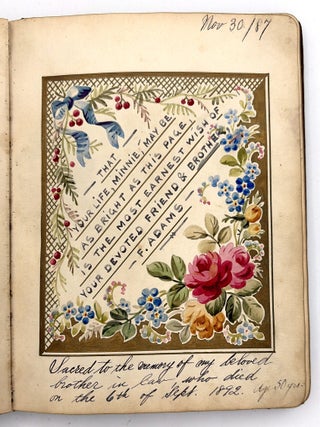 Nov 30/87
THAT
YOUR LIFE, MINNIE, MAY BE
AS BRIGHT AS THIS PAGE
IS THE MOST EARNEST WISH OF
YOUR DEVOTED FRIEND & BROTHER
F. ADAMS
Sacred to the memory of my beloved
brother in law who died
on the 6th of Sept. 1892. Age 30 yrs.